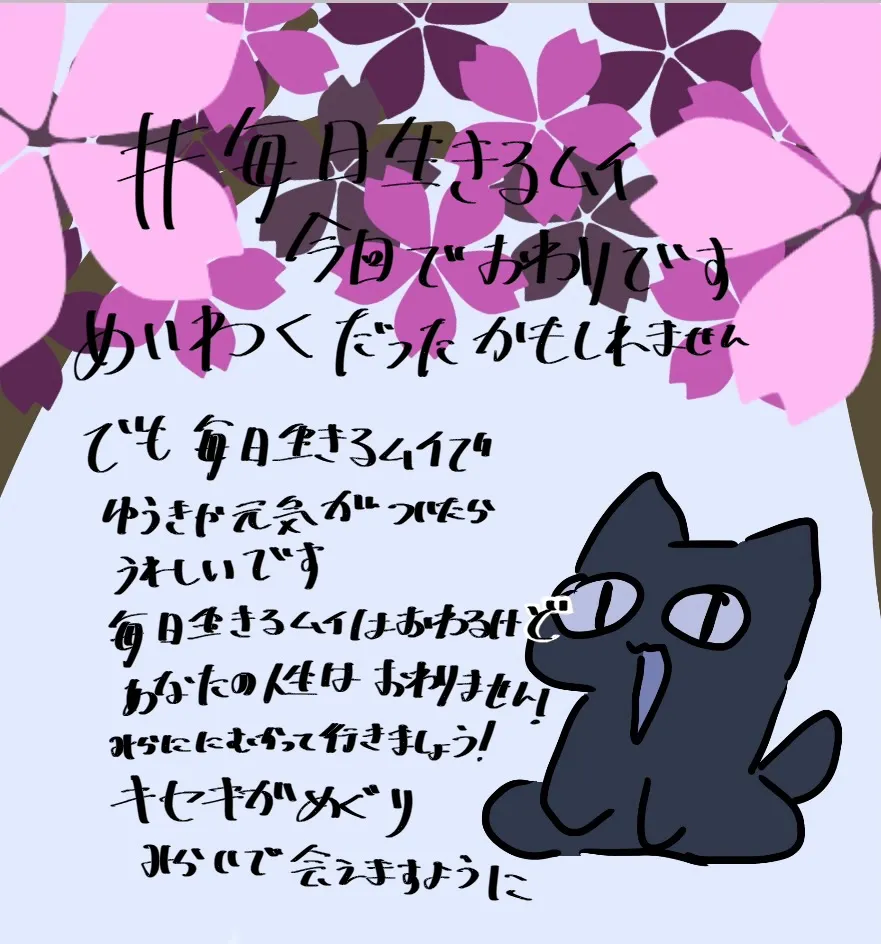 #毎日生きるムイ
今回でおわりです
めいわくだったかもしれません
でも毎日生きるムイで
ゆうきや元気がついたら
うれしいです
毎日生きるムイはおわるけど
あなたの人生はおわりません!
みらいにむかって行きましょう!
キセキがめぐり
みらいで会えますように